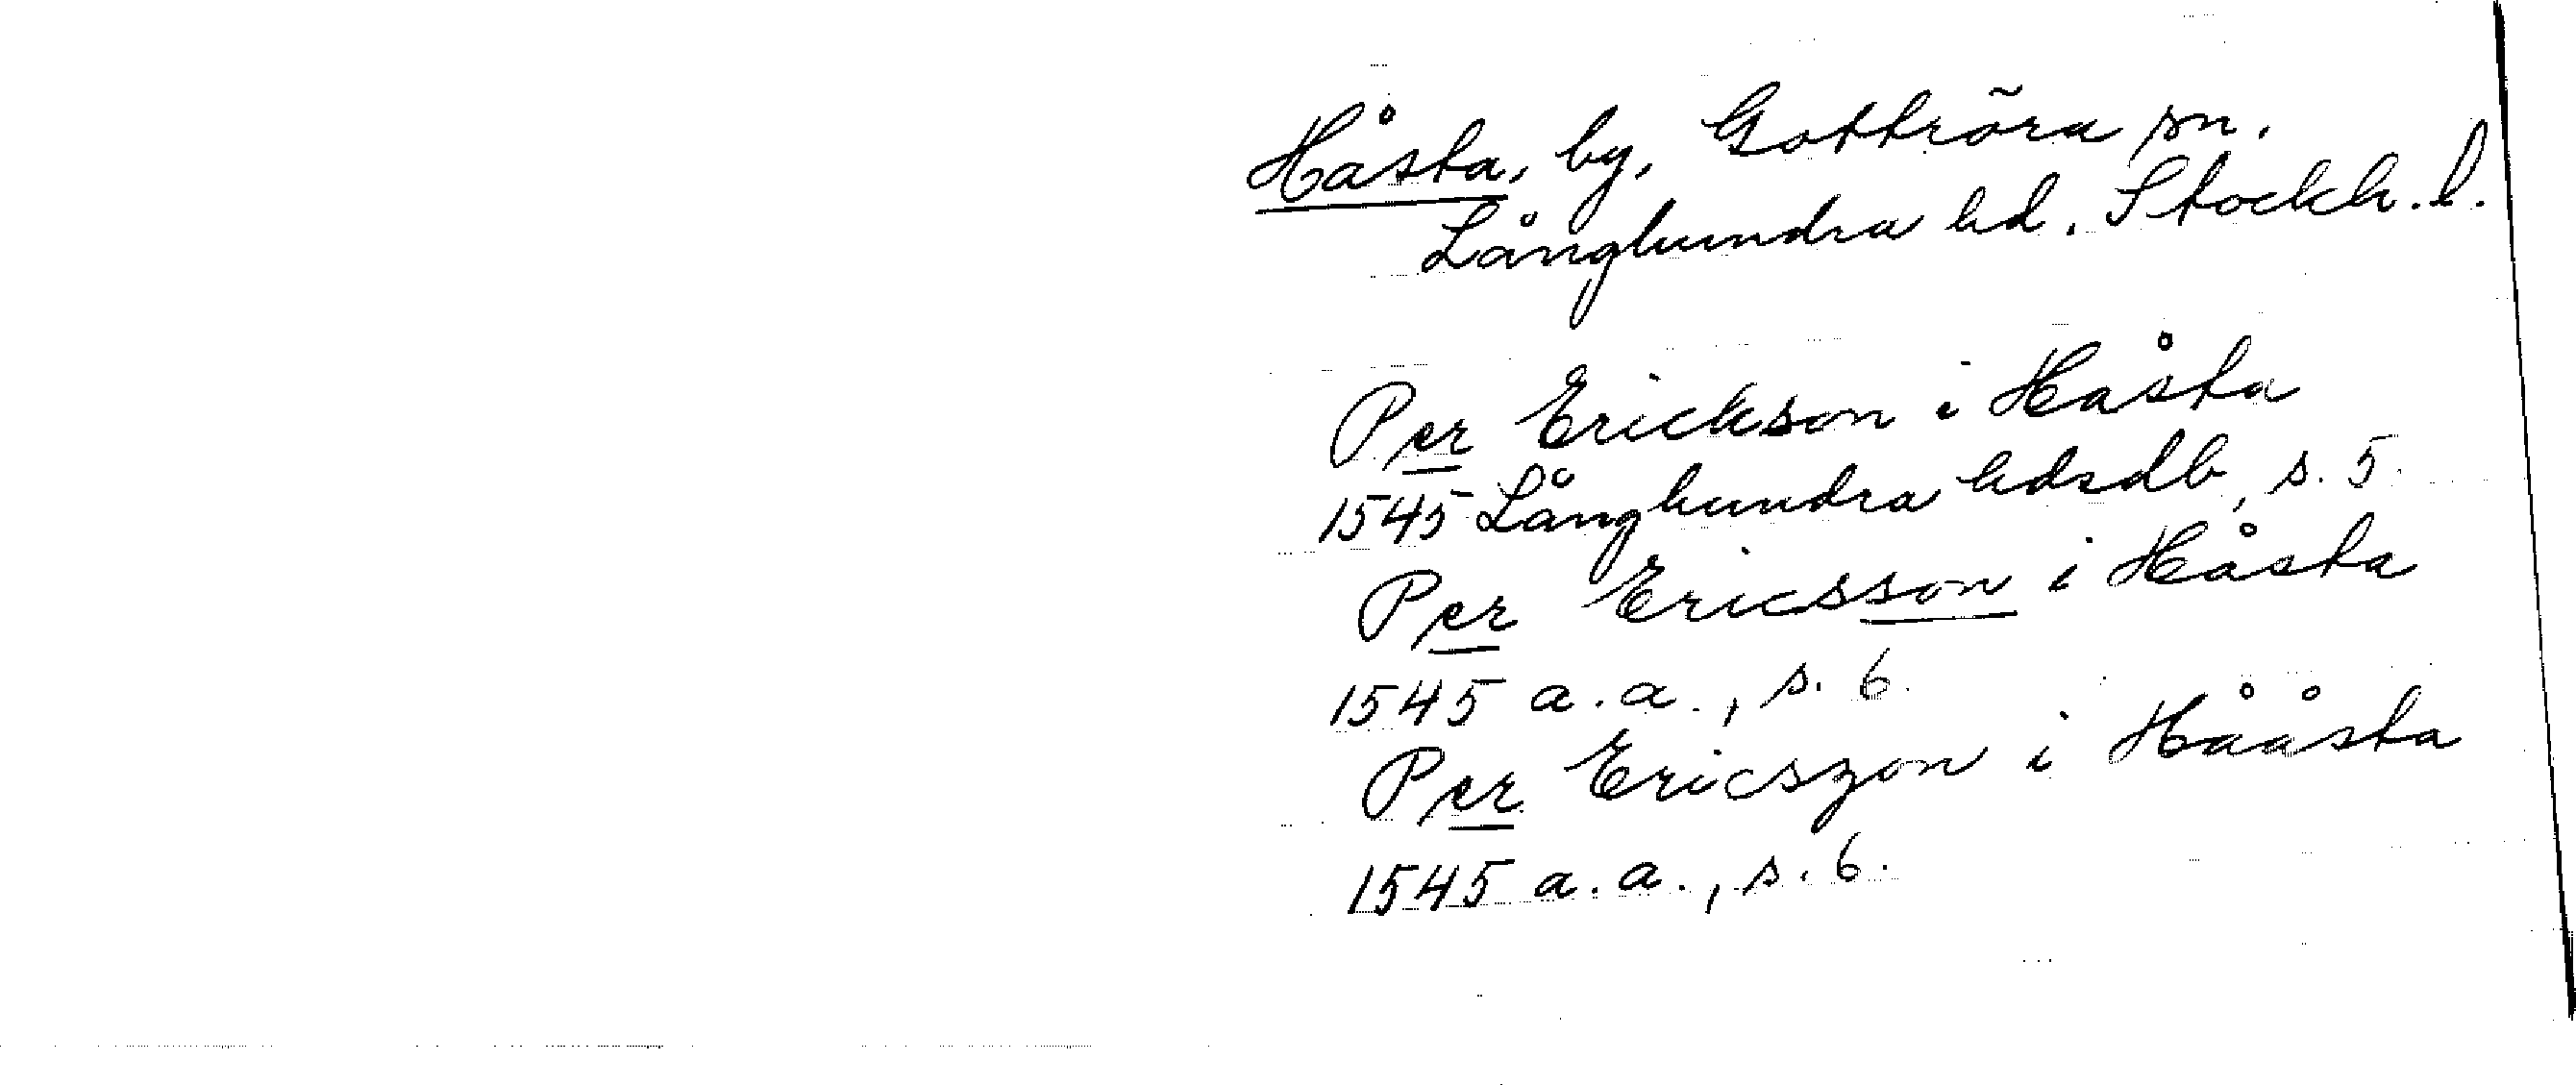 Håsta, by, Gottröra sn.
Långhundra hd. Stockh. l.
Per Erickson i Håsta
1545 Långhundra hdsdb, s. 5.
Per Ericsson i Håsta
1545 a.a., s. 6.
Per Ericszon i Hååsta
1545 a.a., s. 6.